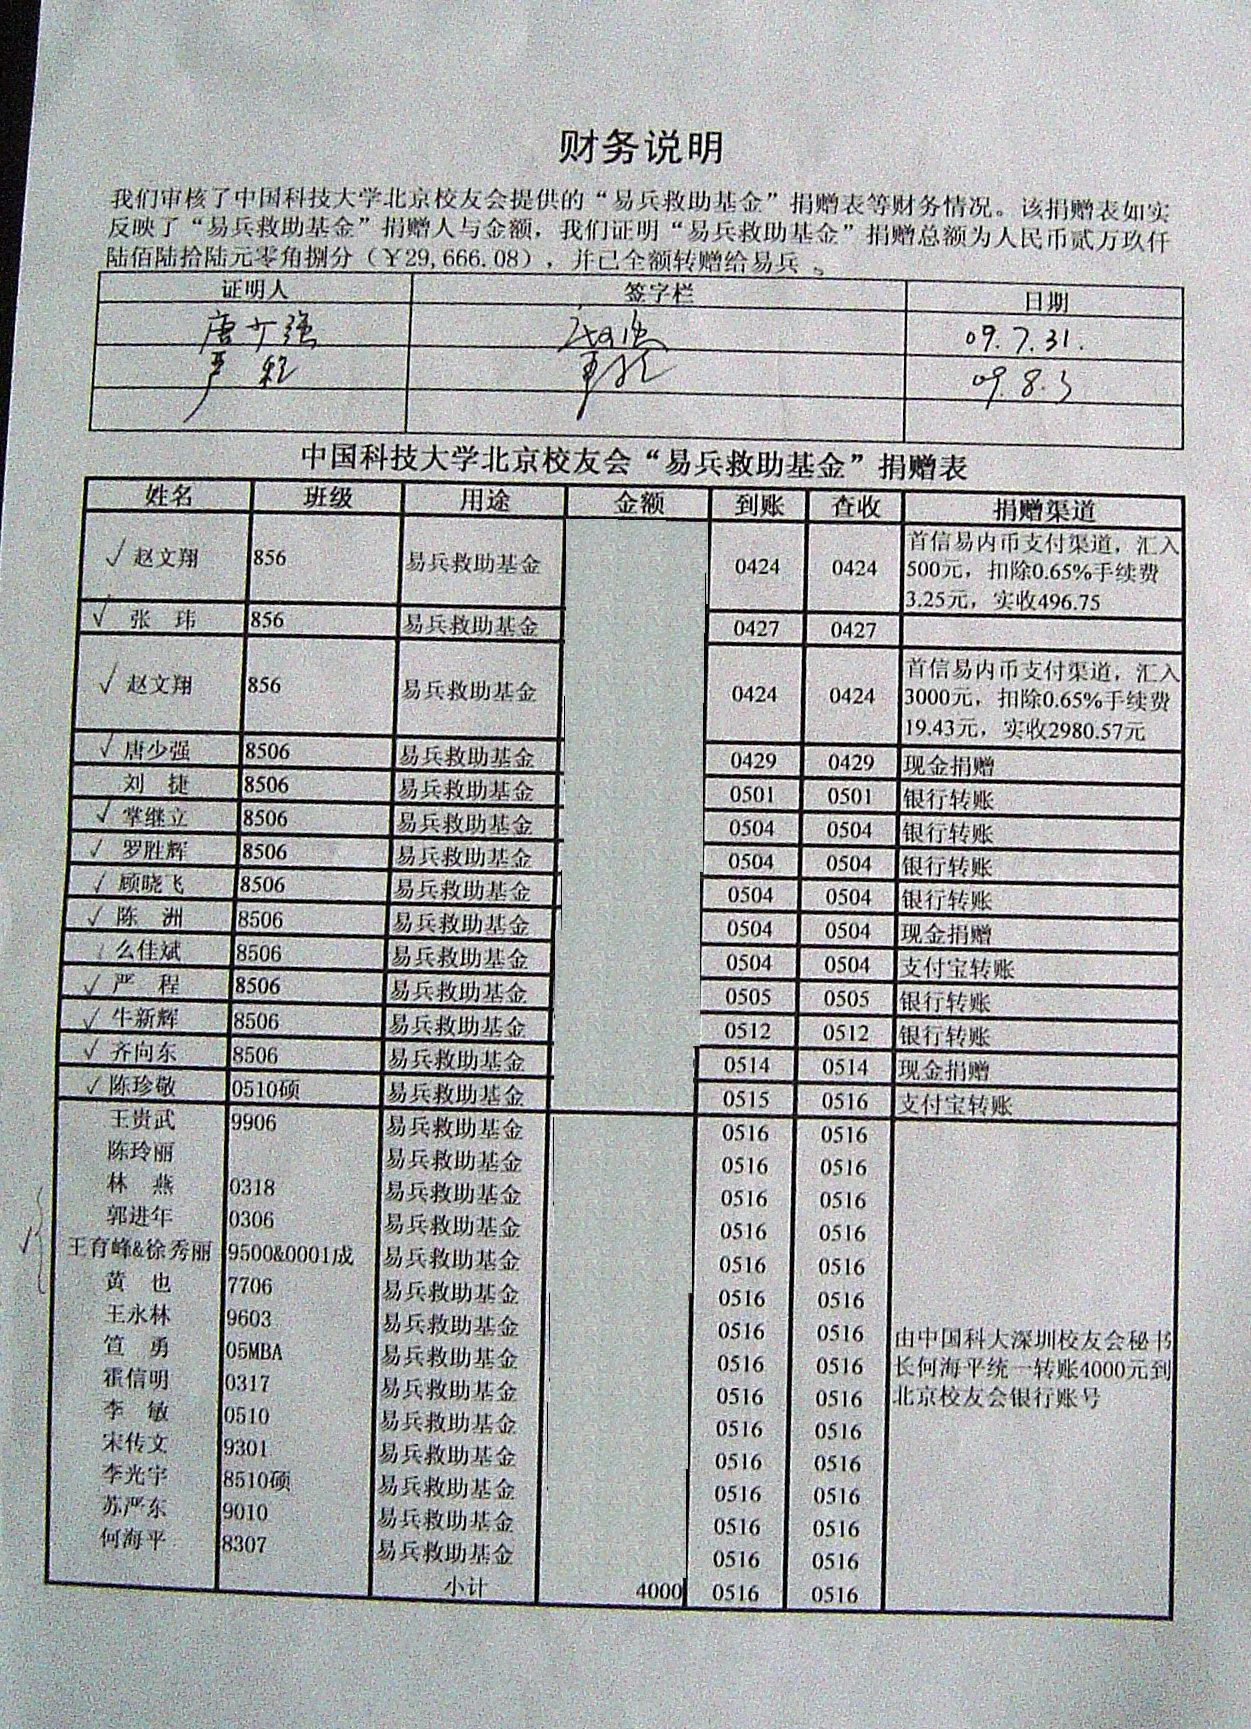 财务说明
我们审核了中国科技大学北京校友会提供的“易兵救助基金”捐赠表等财务情况。该捐赠表如实
反映了“易兵救助基金”捐赠人与金额，我们证明“易兵救助基金”捐赠总额为人民币贰万玖仟
陆佰陆拾陆元零角捌分（¥29,666.08），并已全额转赠给易兵。
证明人 签字栏 日期
唐少强 09.7.31.
严程 09.8.3
中国科技大学北京校友会“易兵救助基金”捐赠表
姓名 班级 用途 金额 到账 查收 捐赠渠道
✓赵文翔 856 易兵救助基金 0424 0424 首信易内币支付渠道，汇入
500元，扣除0.65%手续费
3.25元，实收496.75
✓张 玮 856 易兵救助基金 0427 0427
✓赵文翔 856 易兵救助基金 0424 0424 首信易内币支付渠道，汇入
3000元，扣除0.65%手续费
19.43元，实收2980.57元
✓唐少强 8506 易兵救助基金 0429 0429 现金捐赠
刘 捷 8506 易兵救助基金 0501 0501 银行转账
✓掌继立 8506 易兵救助基金 0504 0504 银行转账
✓罗胜辉 8506 易兵救助基金 0504 0504 银行转账
✓顾晓飞 8506 易兵救助基金 0504 0504 银行转账
✓陈 洲 8506 易兵救助基金 0504 0504 现金捐赠
么佳斌 8506 易兵救助基金 0504 0504 支付宝转账
✓严 程 8506 易兵救助基金 0505 0505 银行转账
✓牛新辉 8506 易兵救助基金 0512 0512 银行转账
✓齐向东 8506 易兵救助基金 0514 0514 现金捐赠
✓陈珍敬 0510硕 易兵救助基金 0515 0516 支付宝转账
王贵武 9906 易兵救助基金 0516 0516
陈玲丽 易兵救助基金 0516 0516
林 燕 0318 易兵救助基金 0516 0516
郭进年 0306 易兵救助基金 0516 0516
王育峰&徐秀丽 9500&0001成 易兵救助基金 0516 0516
黄 也 7706 易兵救助基金 0516 0516
王永林 9603 易兵救助基金 0516 0516
笪 勇 05MBA 易兵救助基金 0516 0516
霍信明 0317 易兵救助基金 0516 0516
李 敏 0510 易兵救助基金 0516 0516
宋传文 9301 易兵救助基金 0516 0516
李光宇 8510硕 易兵救助基金 0516 0516
苏严东 9010 易兵救助基金 0516 0516
何海平 8307 易兵救助基金 0516 0516
小计 4000 0516 0516
由中国科大深圳校友会秘书
长何海平统一转账4000元到
北京校友会银行账号